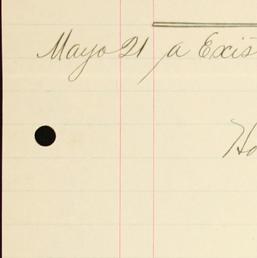 Mayo 21 a Exis
Ha